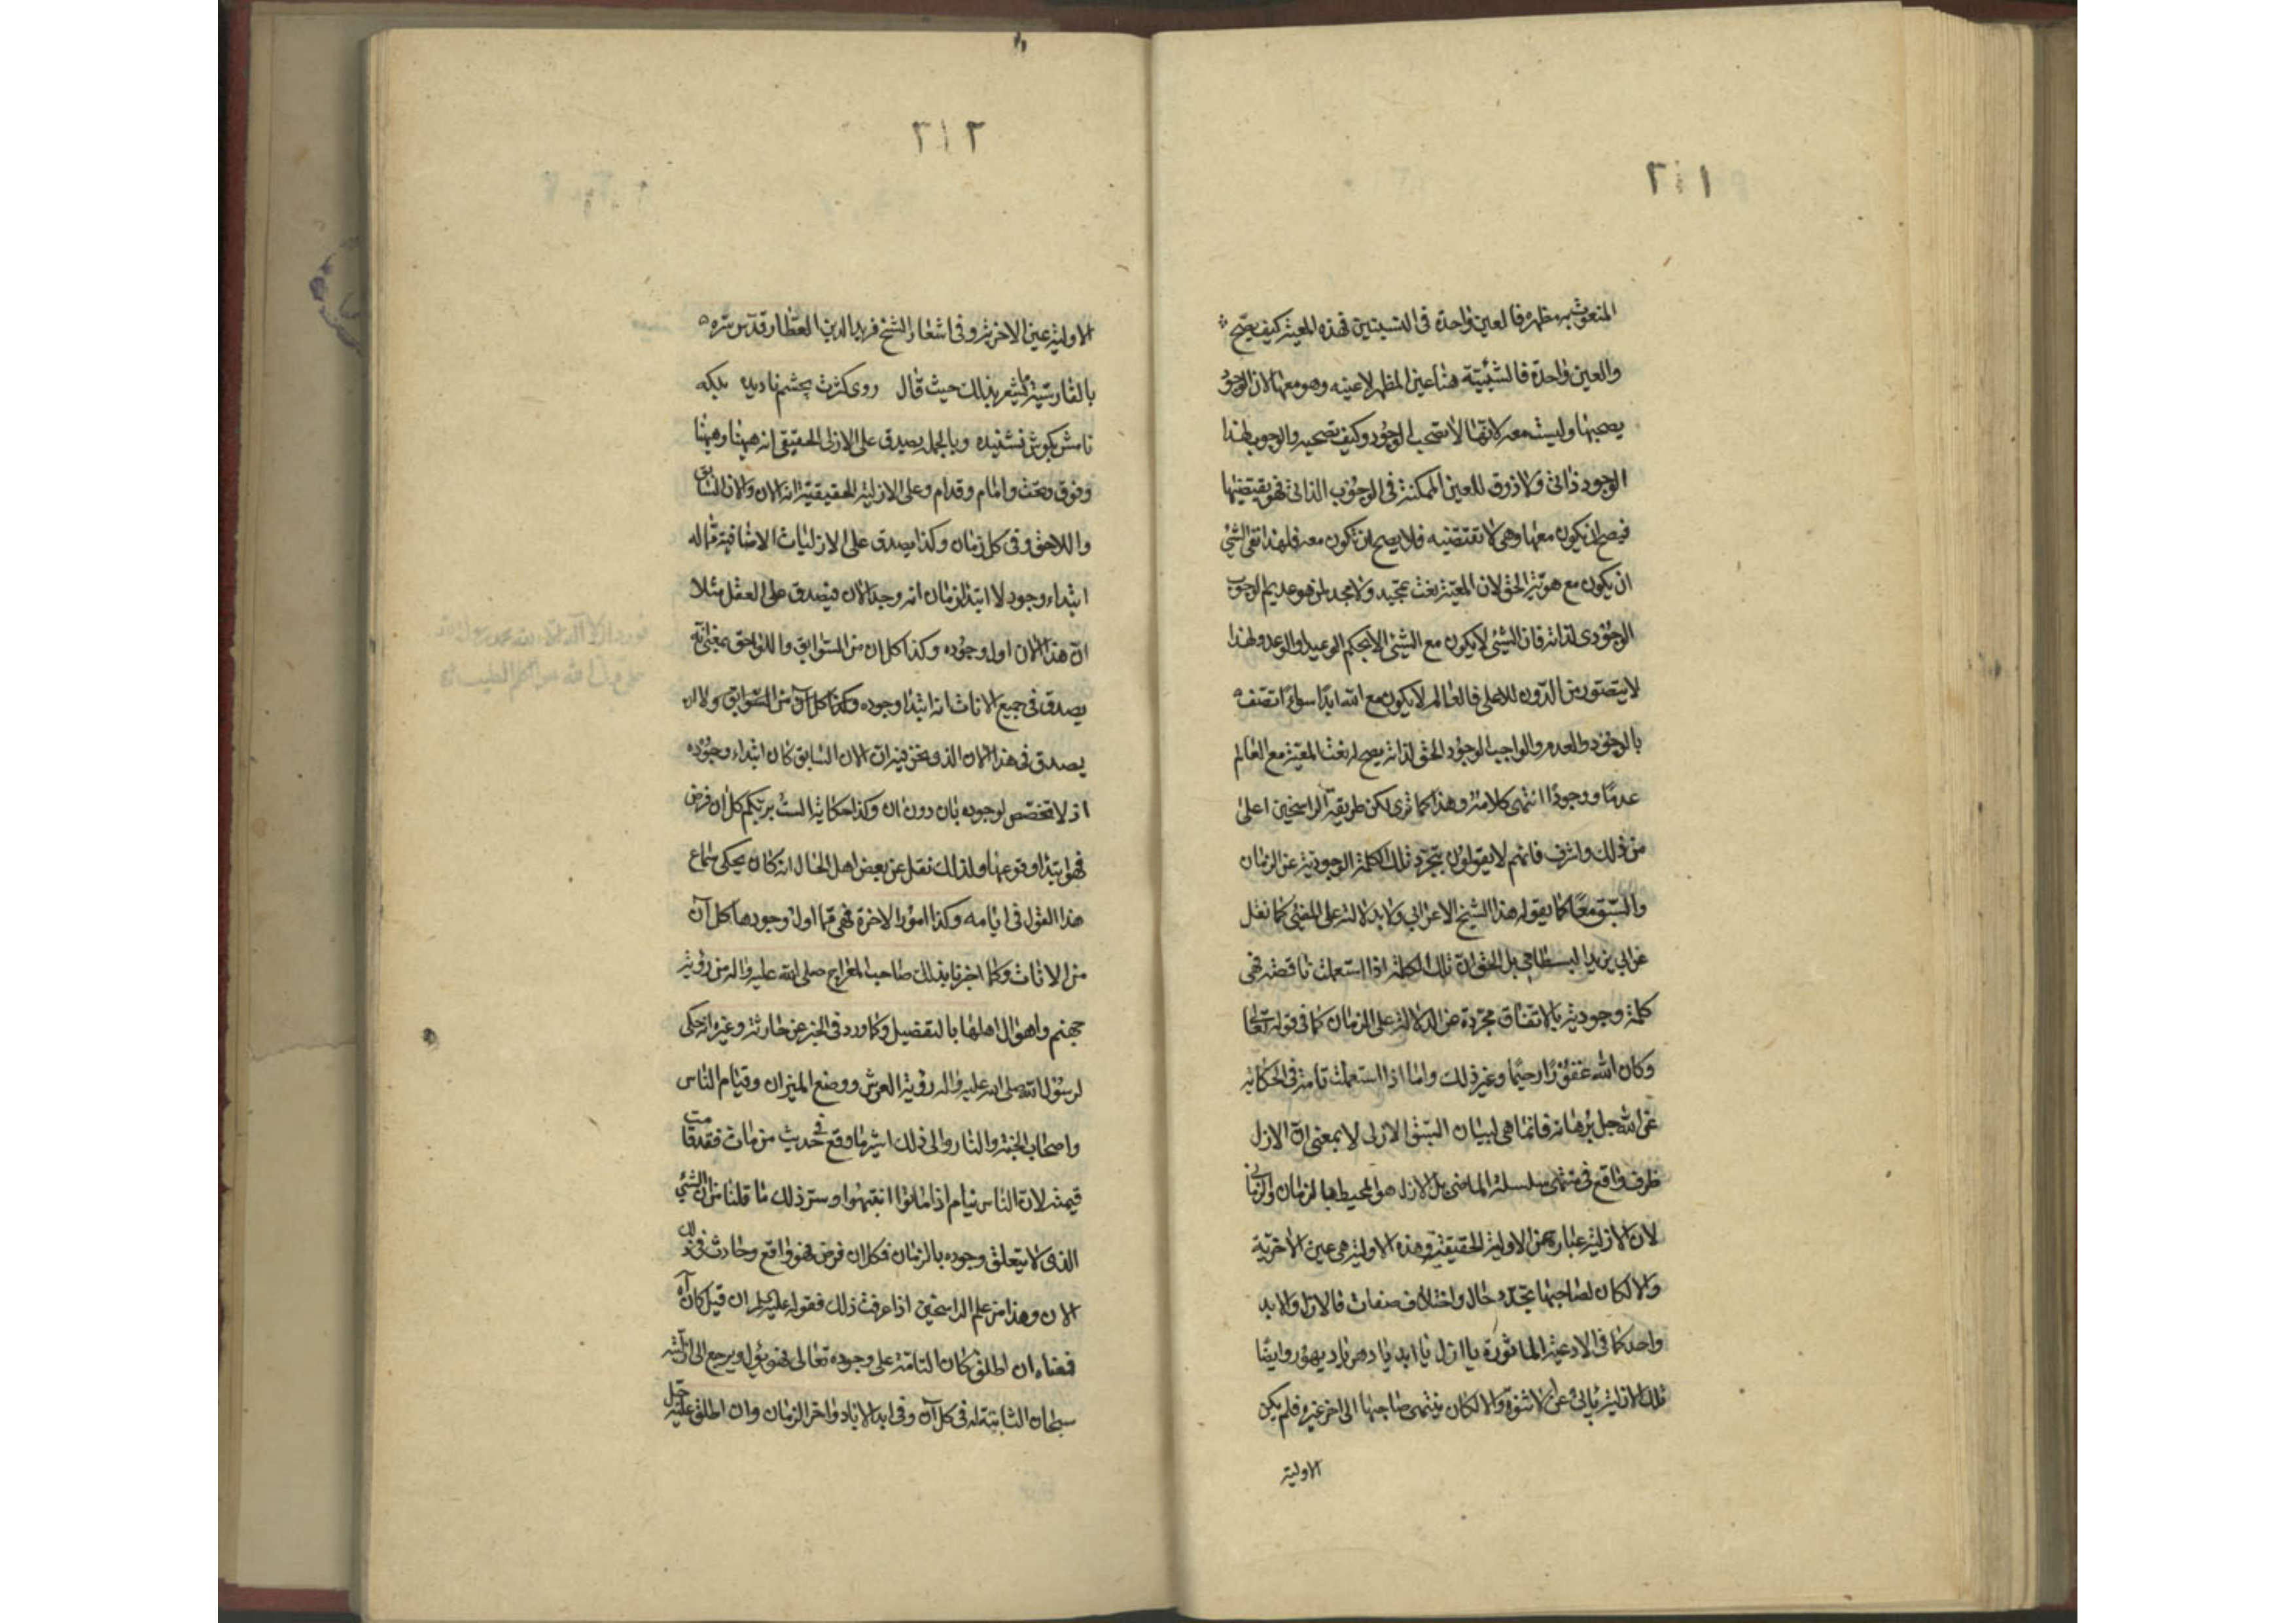 ٢١١
المنعوت بمظهره فالعين واحدة في النسبتين فهذه المعية كيف يصح
والعين واحدة فالشيئية هنا عين المظهر لا عينه وهو معها لان الوجود
يصحبها وليست معه لانها لا تصحب الوجود وكيف تصحبه والوجوب لهذا
الوجود ذاتي ولا ذوق للعين الممكنة في الوجوب الذاتي فهو يقتضيها
فيصح ان يكون معها وهي لا تقتضيه فلا يصح ان تكون معه فلهذا نفى الشئ
ان يكون مع هوية الحق لان المعية نعت تمجيد ولا مجد لمن هو عديم الوجوب
الوجودى لذاته فان الشئ لا يكون مع الشئ الا بحكم الوعيد او الوعد ولهذا
لا يتصور من الدون للاعلى فالعالم لا يكون مع الله ابدا سواء اتصف
بالوجود والعدم والواجب الوجود الحق لذاته يصح له نعت المعية مع العالم
عدما ووجودا انتهى كلامه وهذا كما ترى لكن طريقة الراسخين اعلى
من ذلك واشرف فانهم لا يقولون بتجرد تلك الكلمة الوجودية عن الزمان
والسبق معا كما يقوله هذا الشيخ الاعرابي ولا بدلالته على المضى كما نقل
عن ابي يزيد البسطامي بل الحق ان تلك الكلمة اذا استعملت ناقصة فهي
كلمة وجودية بالاتفاق مجردة عن الدلالة على الزمان كما في قوله تعالى
وكان الله غفورا رحيما وغير ذلك واما اذا استعملت تامة في الحكاية
عن الله جل برهانه فانما هي لبيان السبق الازلى لا بمعنى ان الازل
ظرف واقع في منتهى سلسلة الماضي بل الازل هو المحيط بالزمان والزماني
لان الازلية عبارة عن الاولية الحقيقية وهذه الاولية هي عين الاخرية
والا لكان لصاحبها تجدد حال واختلاف صفات فالازل والابد
واحد كما في الادعية الماثورة يا ازل يا ابد يا دهر يا ديهور وايضا
تلك الازلية تابى عن الاثنوة والا لكان ينتهى صاحبها الى اخر غيره فلم يكن
الاولية
٢١٢
الاولية عين الاخرية وفي اشعار الشيخ فريد الدين العطار قدس سره
بالفارسية ما يشعر بذلك حيث قال روى كثرت بچشم ناديده بلكه
نامش بگوش نشنيده وبالجملة يصدق على الازلى الحقيقي انه هيهنا وهيهنا
وفوق وتحت وامام وقدام وعلى الازلية الحقيقية انه الان والان السابق
واللاحق وفي كل زمان وكذا يصدق على الازليات الاضافية مما له
ابتداء وجود لا ابتداء زمان انه وجد الان فيصدق على العقل مثلا
ان هذا الان اول وجوده وكذا كل ان من السوابق واللواحق بمعنى انه
يصدق في جميع الانات انه ابتداء وجوده وكذا كل ان من السوابق ولا ان
يصدق في هذا الان الذي نحن فيه ان الان السابق كان ابتداء وجوده
اذ لا تخصص لوجوده بان دون ان وكذا حكاية الست بربكم كل ان فرض
فهو ابتداء وقوعها ولذلك نقل عن بعض اهل الحال انه كان يحكى سماع
هذا القول في ايامه وكذا امور الاخرة فهي مما اول وجودها كل آن
من الانات وكما اخبرنا بذلك صاحب المعراج صلى الله عليه واله من رؤية
جهنم واهوال اهلها بالتفصيل وكما ورد في الخبر عن حارثة وغيره انه حكى
لرسول الله صلى الله عليه واله رؤية العرش ووضع الميزان وقيام الناس
واصحاب الجنة والنار والى ذلك اشير ما وقع في حديث من مات فقد قامت
قيمته لان الناس نيام اذا ماتوا انتبهوا وستر ذلك ما قلنا من ان الشئ
الذى لا يتعلق وجوده بالزمان فكل ان فرض فهو واقع وحادث في ذلك
الان وهذا من علم الراسخين اذا عرفت ذلك فقوله عليه السلم ان قيل كان آه
فمعناه ان اطلق كان التامة على وجوده تعالى فهو يؤول ويرجع الى ازليته
سبحانه الثابتة له في كل آن وفي ابد الاباد واخر الزمان وان اطلق عليه جل